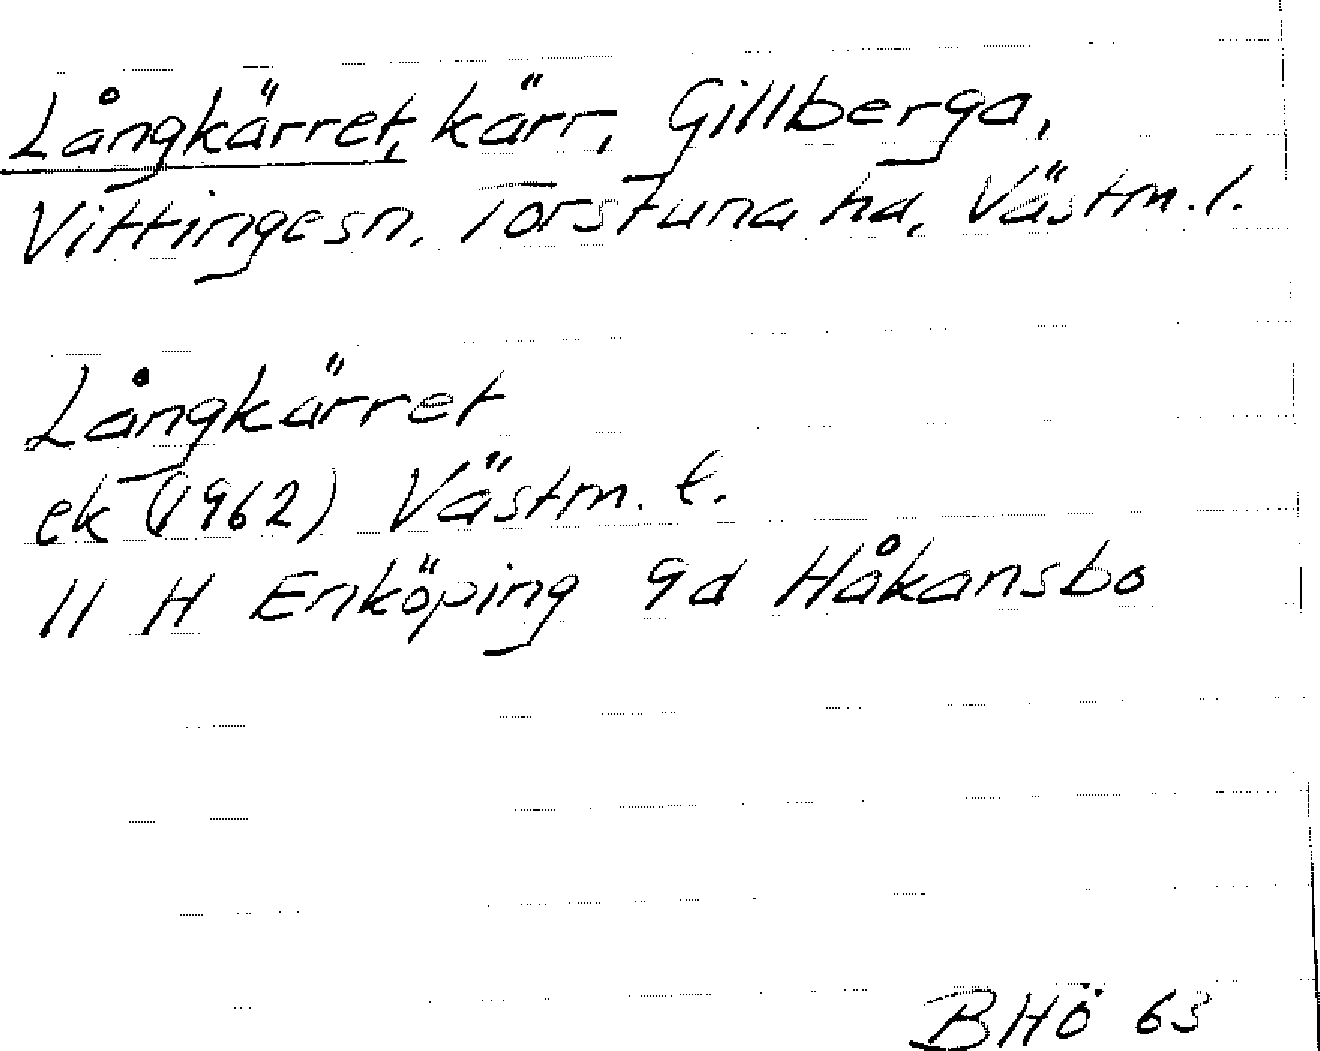 Långkärret, kärr, Gillberga,
Vittinge sn. Torstuna hd, Västm. l.
Långkärret
ek (1962) Västm. l.
11 H Enköping 9d Håkansbo
BHÖ 63